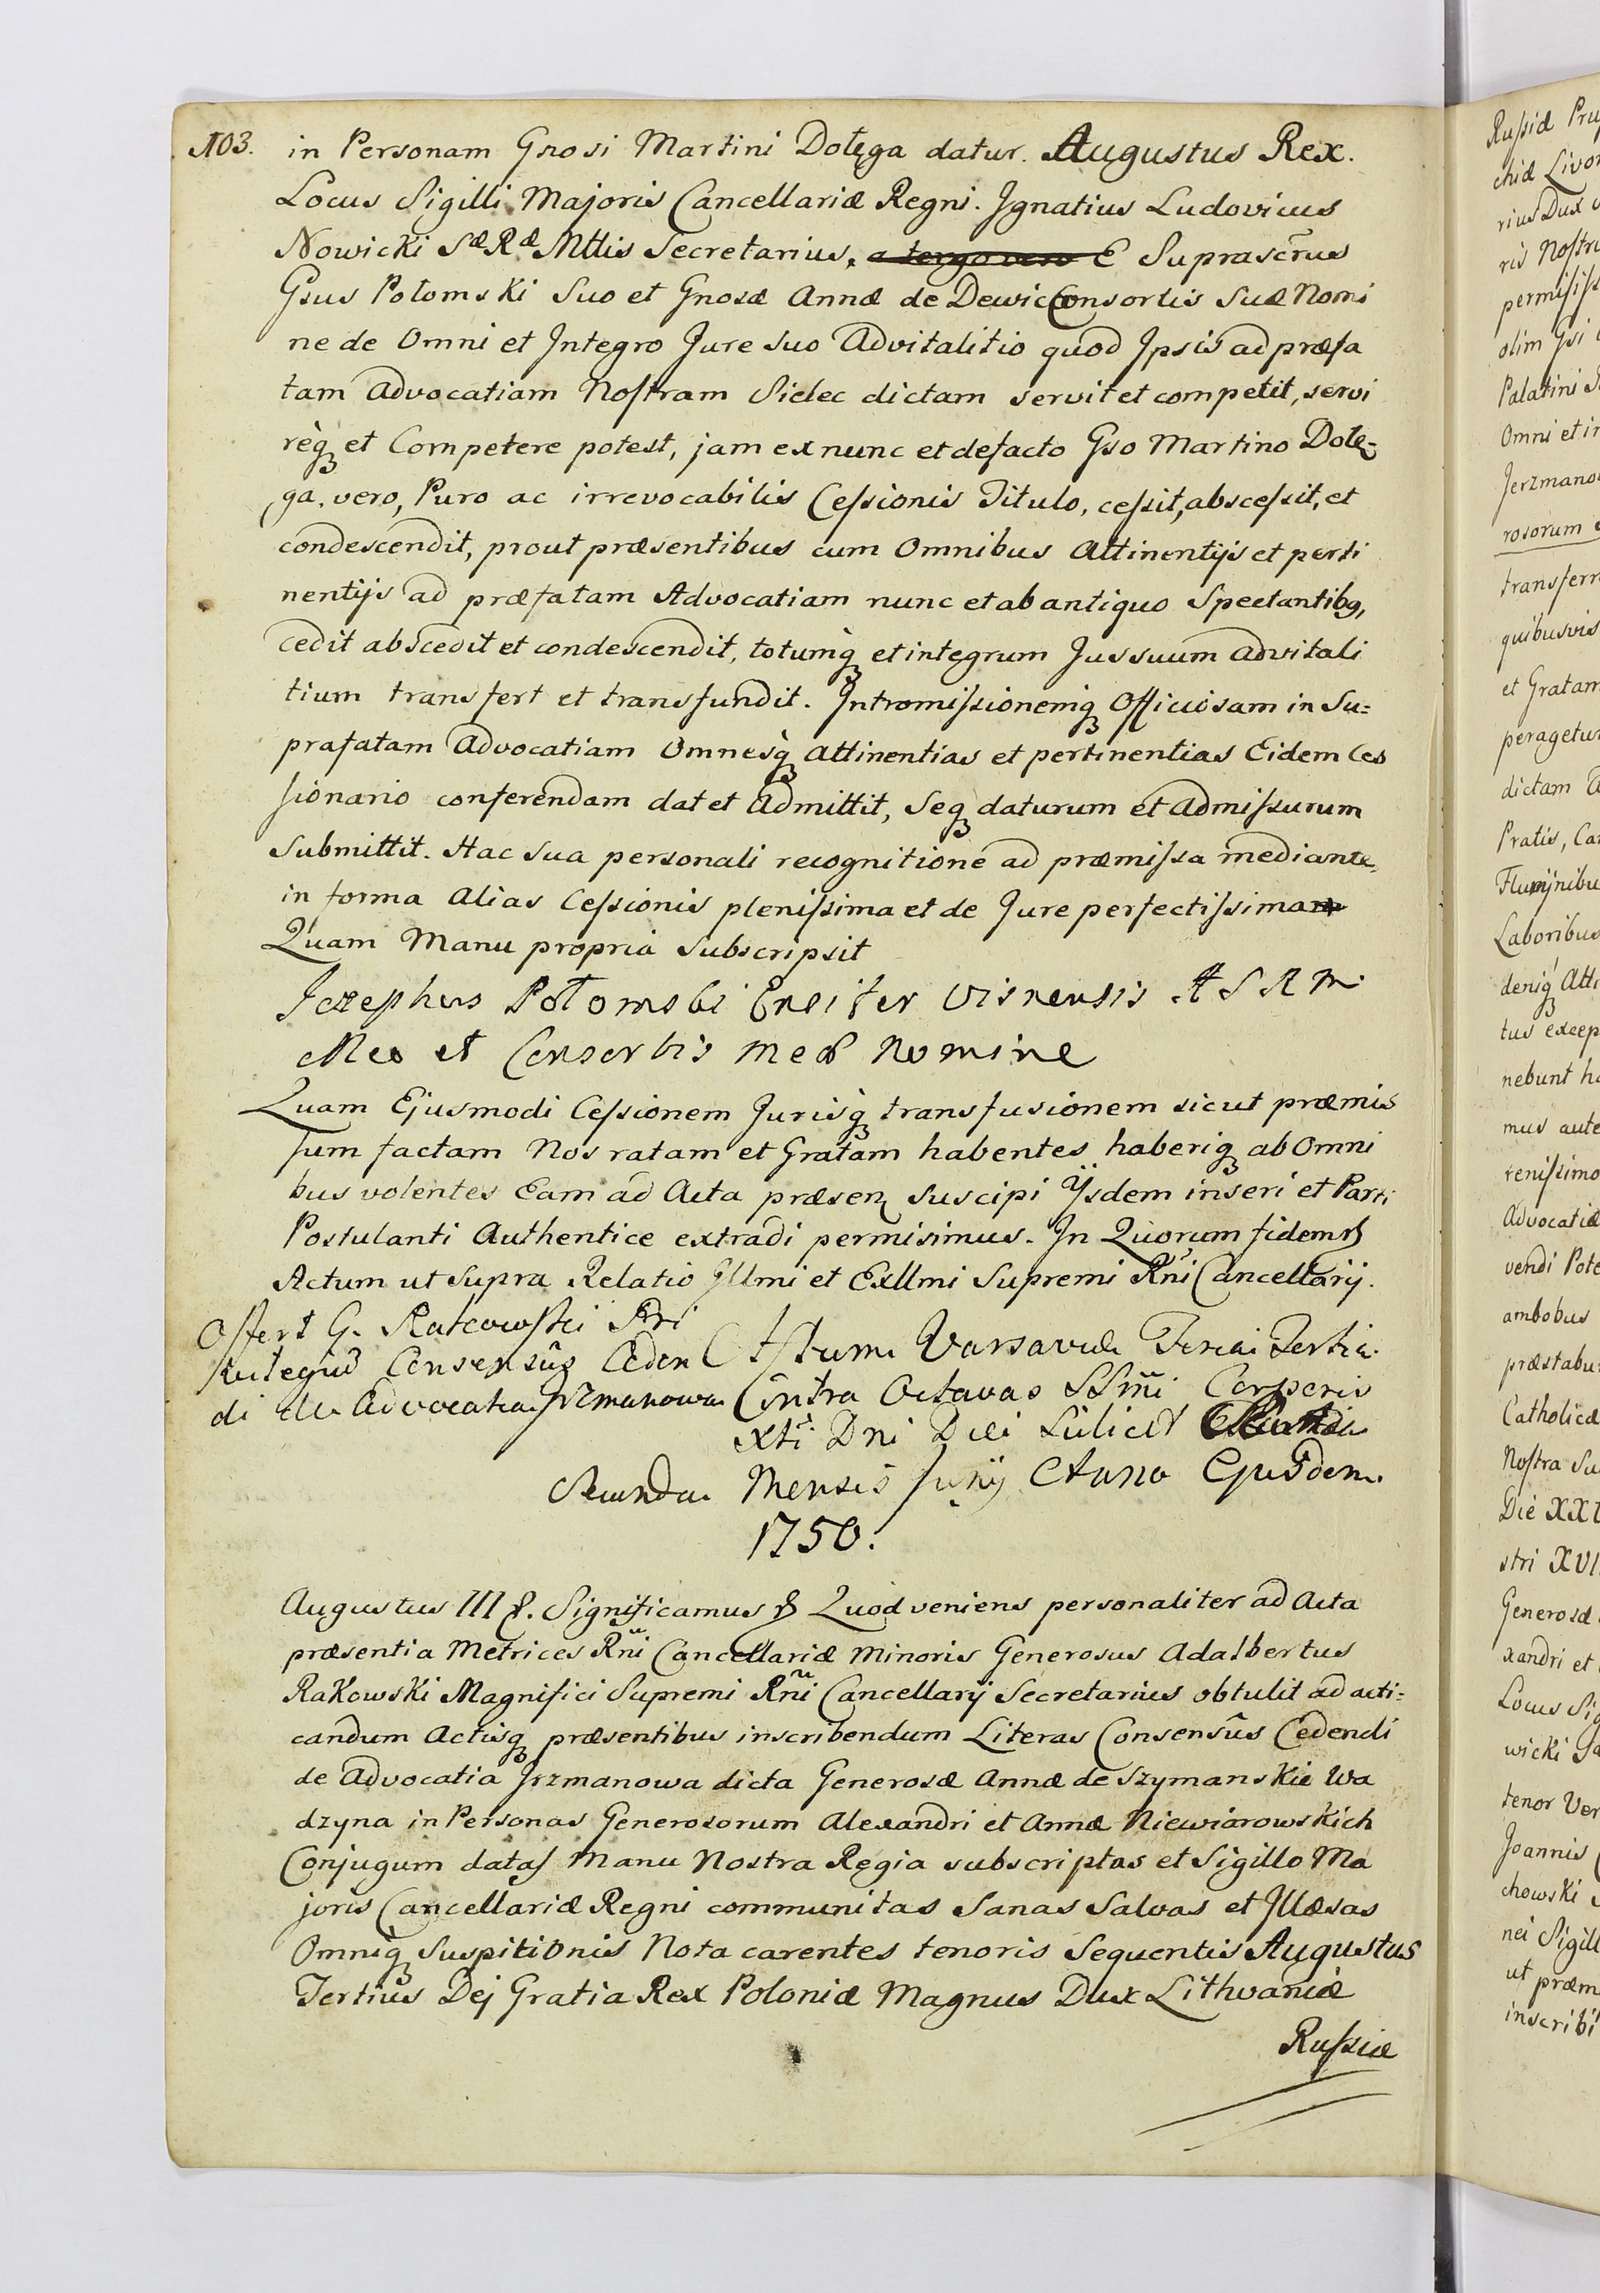 103. in Personam Gnosi Martini Dołęga datur. Augustus Rex.
Locus Sigilli Majoris Cancellariæ Regni. Ignatius Ludovicus
Nowicki Sæ Ræ Mttis Secretarius, a tergo vero E Suprascrus
Gsus Potomski Suo et Gnosæ Annæ de Dewic Consortis Suæ Nomi
ne de Omni et Integro Jure Suo Advitalitio quod Ipsis ad præfa
tam Advocatiam Nostram Sielec dictam servit et competit, servi
req et Competere potest, jam ex nunc et de facto Gso Martino Dołę-
ga, vero, Puro ac irrevocabilis Cessionis Titulo, cessit, abscessit, et
condescendit, prout præsentibus cum Omnibus Attinentijs et perti
nentijs ad præfatam Advocatiam nunc et ab antiquo Spectantibq,
cedit abscedit et condescendit, totumq et integrum Jus suum advitali
tium transfert et transfundit. Intromissionemq Officiosam in Su=
prafatam Advocatiam Omnesq attinentias et pertinentias Eidem Ces
sionario conferendam dat et Admittit, Seq daturum et admissurum
Submittit. Hac Sua personali recognitione ad præmissa mediante,
in forma Alias Cessionis plenissima et de Jure perfectissima
Quam Manu propria Subscripsit
Jozephus Potomski Ensifer Visnensis A S R M
Meo et Consortis meæ Nomine
Quam Ejusmodi Cessionem Jurisq transfusionem sicut præmis
sum factam Nos ratam et Gratam habentes haberiq ab Omni
bus volentes Eam ad Acta præsen Suscipi Ijsdem inseri et Parti
Postulanti Authentice extradi permisimus. In Quorum fidem
Actum ut Supra Relatio Illmi et Exllmi Supremi Rni Cancellarij.
Offert G. Rakowski
Consensus Ceden
di de Advocatia Jrzmanowa
Actum Varsaviæ Feria Tertia
intra Octavas SSmi Corporis
Xti Dni Diei Scilicet
Secunda Mensis Junij Anno Ejusdem
1750.
Augustus III Significamus Quod veniens personaliter ad Acta
præsentia Metrices Rni Cancellariæ Minoris Generosus Adalbertus
Rakowski Magnifici Supremi Rni Cancellarij Secretarius obtulit ad acti=
candum Actisq præsentibus inscribendum Literas Consensûs Cedendi
de Advocatia Jrzmanowa dicta Generosæ Annæ de Szymanskie Wa
dzyna in Personas Generosorum Alexandri et Annæ Niewiarowskich
Conjugum datas Manu Nostra Regia subscriptas et Sigillo Ma
joris Cancellariæ Regni communitas Sanas Salvas et Illæsas
Omniq Suspitionis Nota carentes tenoris Sequentis Augustus
Tertius Dej Gratia Rex Poloniæ Magnus Dux Lithvaniæ
Russiæ